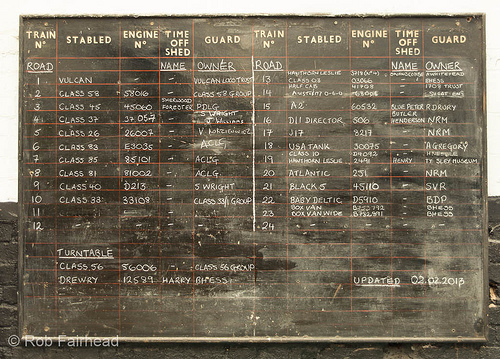 TRAIN Nº STABLED ENGINE Nº TIME OFF SHED GUARD TRAIN Nº STABLED ENGINE Nº TIME OFF SHED GUARD
ROAD NAME OWNER ROAD NAME OWNER
1 VULCAN - - VULCAN LOCO TRUST 13 HAWTHORN LESLIE
CLASS 03 03066
HALF CAB
2 CLASS 58 58016 - CLASS 58 GROUP 14 AUSTERITY 0-6-0
3 CLASS 45 45060 SHERWOOD FORESTER PDLG 15 A2 60532 BLUE PETER R DRORY
4 CLASS 37 37057 - S WRIGHT J WILLIAMS 16 D11 DIRECTOR 506 BUTLER HENDERSON NRM
5 CLASS 26 26007 - 17 J17 8217 - NRM
6 CLASS 83 E3035 - ACLG 18 USA TANK 30075 - AGREGORY
7 CLASS 85 85101 - ACLG 19 CLASS 10
HAWTHORN LESLIE 2491 HENRY TYSELEY MUSEUM
8 CLASS 81 81002 - ACLG 20 ATLANTIC 251 - NRM
9 CLASS 40 D213 - S WRIGHT 21 BLACK 5 45110 - SVR
10 CLASS 33 33108 - CLASS 33/1 GROUP 22 BABY DELTIC D5910 - BDP
11 - - - - 23 BOX VAN - BHESS
BOX VAN WIDE - BHESS
12 - - - - 24 - - - -
TURNTABLE
CLASS 56 56006 - CLASS 56 GROUP
DREWRY 12589 HARRY BHESS UPDATED 02.02.2013
© Rob Fairhead